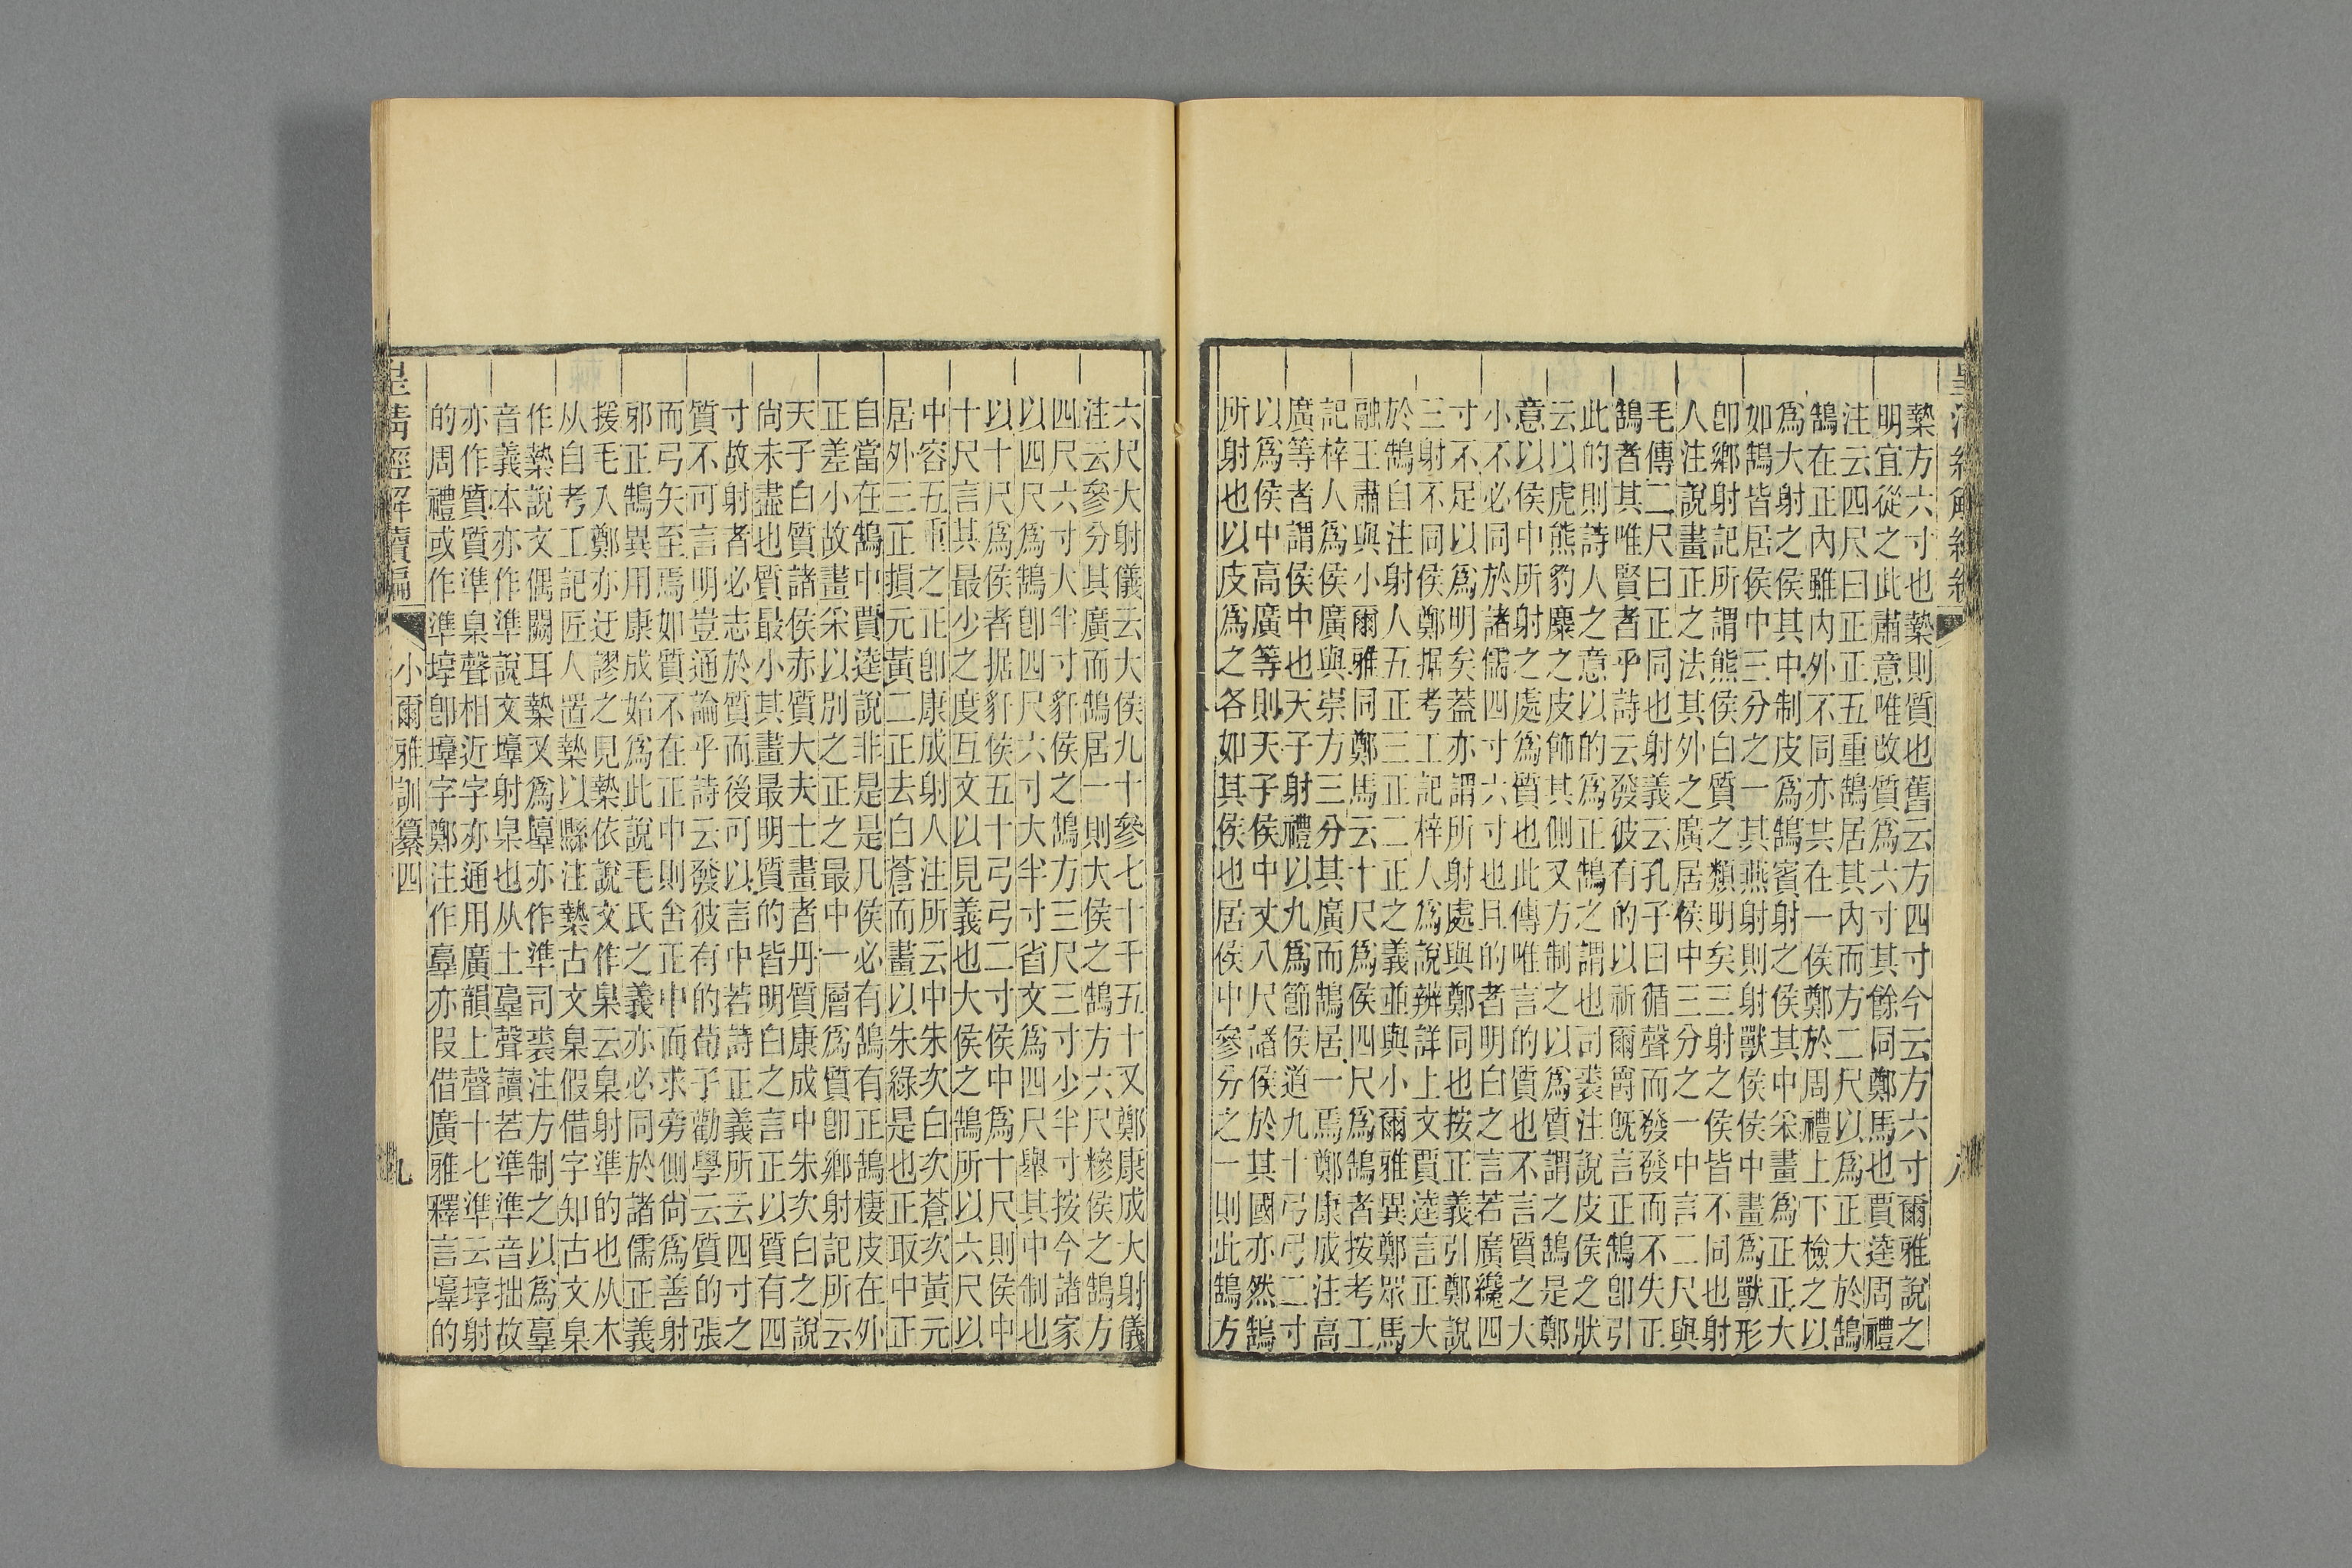 皇清經解續編
槷方六寸也槷則質也舊云方四寸今云方六寸爾雅說之
明宜從之此肅意唯改質為六寸其餘同鄭馬也賈逵周禮
注云四尺曰正正五重鵠居其內而方二尺以為正大於鵠
鵠在正內雖內外不同亦共在一侯鄭於周禮上下檢之以
為大射之侯其中制皮為鵠賓射之侯其中采畫為正正大
如鵠皆居侯中三分之一其燕射則射獸侯侯中畫為獸形
卽鄉射記所謂熊侯白質之類明矣三射之侯皆不同也射
人注說畫正之法其外之廣居侯中三分之一中言二尺與
毛傳二尺曰正同也射義云孔子曰循聲而發發而不失正
鵠者其唯賢者乎詩云發彼有的以祈爾爵旣言正鵠卽引
此的則詩人之意以的為正鵠之謂也司裘注說皮侯之狀
云以虎熊豹麋之皮飾其側又方制之以為質謂之鵠是鄭
意以侯中所射之處為質也此傳唯言的質也不言質之大
小不必同於諸儒四寸六寸也且的者明白之言若廣纔四
寸不足以為明矣蓋亦謂所射處與鄭同也按正義引鄭說
三射不同侯鄭据考工記梓人為說辨詳上文賈逵言正大
於鵠白注射人五正三正二正之義並與小爾雅異鄭眾馬
融王肅與小爾雅同鄭馬云十尺為侯四尺為鵠者按考工
記梓人為侯廣與崇方三分其廣而鵠居一焉鄭康成注高
廣等者謂侯中也天子射禮以九為節侯道九十弓弓二寸
以為侯中高廣等則天子侯中丈八尺諸侯於其國亦然鵠
所射也以皮為之各如其侯也居侯中參分之一則此鵠方
六尺大射儀云大侯九十參七十干五十又鄭康成大射儀
注云參分其廣而鵠居一則大侯之鵠方六尺糝侯之鵠方
四尺六寸大半寸豻侯之鵠方三尺三寸少半寸按今諸家
以四尺為鵠卽四尺六寸大半寸省文為四尺舉其中制也
以十尺為侯者据豻侯五十弓弓二寸侯中為十尺則侯中
十尺言其最少之度互文以見義也大侯之鵠所以六尺以
中容五重之正卽康成射人注所云中朱次白次蒼次黃元
居外三正損元黃二正去白蒼而畫以朱綠是也正取中正
自當在鵠中賈逵說非是是凡侯必有鵠有正鵠棲皮在外
正差小故畫采以別之正之最中一層為質卽鄉射記所云
天子白質諸侯赤質大夫士畫者丹質康成中朱次白之說
尚未盡也質最小其畫最明質的皆明白之言正以質有四
寸故射者必志於質而後可以言中若詩正義所云四寸之
質不可言明豈通論乎詩云發彼有的荀子勸學云質的張
而弓矢至焉如質不在正中則舍正中而求旁側尚為善射
邪正鵠異用康成始為此說毛氏之義亦必同於諸儒正義
援毛入鄭亦迂謬之見槷依說文作臬云臬射準的也从木
从自考工記匠人置槷以縣注槷古文臬假借字知古文臬
作槷說文偶闕耳槷又為𡐴亦作準司裘注方制之以為𦎫
音義本亦作準說文𡐴射臬也从土𦎫聲讀若準準音拙故
亦作質質準臬聲相近字亦通用廣韻上聲十七準云埻射
的周禮或作準埻卽𡐴字鄭注作𦎫亦叚借廣雅釋言𡐴的
皇清經解續編
小爾雅訓纂四
九